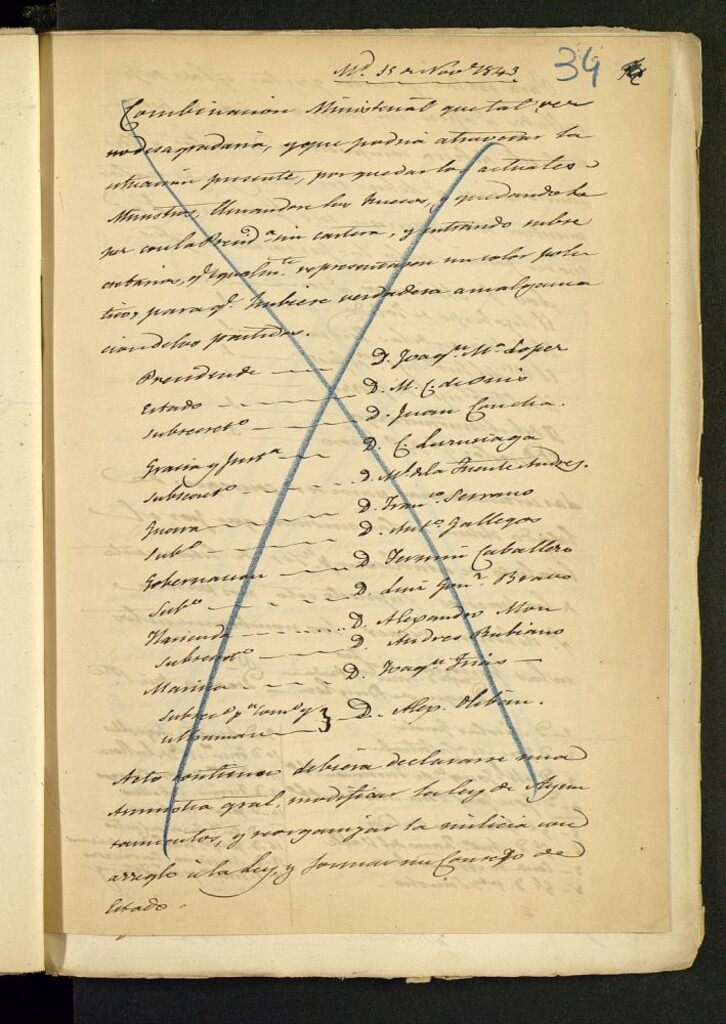 Md. 15 de Nove. 1843
34
Combinacion Ministerial que tal vez
no desagradaria, y que podria atravesar la
situacion presente, por quedar los actuales
Ministros, llamandose los nuevos, y quedando Lo
pez con la Presida. sin cartera, y entrando subse
cretarios, qe. igualmte. representasen un color poli
tico, para qe. hubiese verdadera amalgama
cion de los partidos.
Presidente — D. Joaqn. Ma. Lopez
Estado — D. M. C. de Onis
Subsecreto. — D. Juan Concha.
Gracia y Justa. — D. C. Luzuriaga
Subsecreto. — D. Ml. de la Fuente Andres.
Guerra — D. Franco. Serrano
Subso. — D. Anto. Gallegos
Gobernacion — D. Fermin Caballero
Subso. — D. Luis Gonz. Bravo
Hacienda — D. Alexandro Mon
Subsecreto. — D. Andres Rubiano
Marina — D. Joaqn. Frias —
Subsec. pa. Como. y
ultramar } — D. Alex. Oliban.
Acto continuo debiera declararse una
Amnistia gral. modificar la ley de Ayun
tamientos, y reorganizar la milicia con
arreglo á la Ley, y formar un Consejo de
Estado.